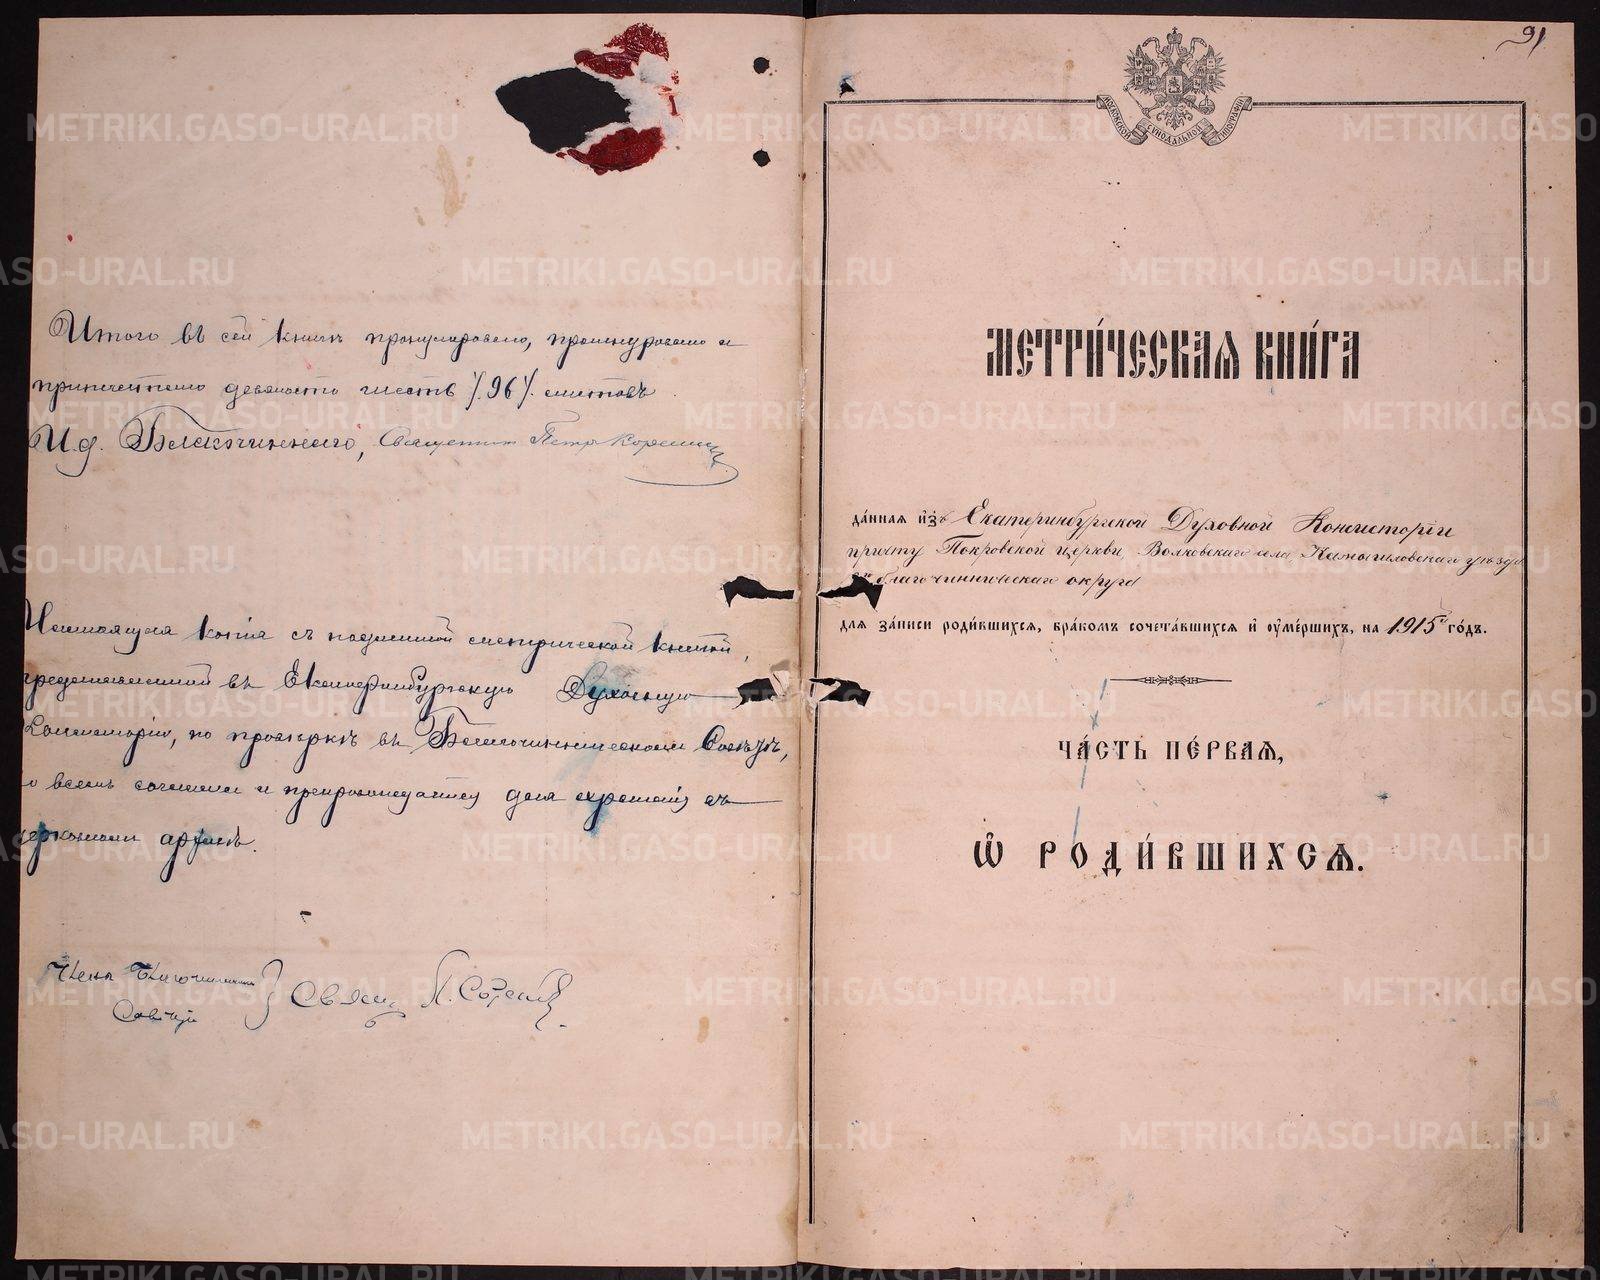 Итого въ сей книгѣ пронумеровано, прошнуровано и
припечатано девяносто шесть /.96/. листовъ.
И. д. Благочиннаго, Священникъ Петръ
Настоящая копія съ подлинной метрической книгой,
представленной въ Екатеринбургскую Духовную
Консисторію, по провѣркѣ въ Благочинническомъ Совѣтѣ,
во всемъ согласна и препровождается для храненія въ
церковномъ архивѣ.
Членъ Благочинническаго
Совѣта
Свящ.
91
МОСКОВСКОЙ СѴНОДАЛЬНОЙ ТИПОГРАФІИ
МЕТРИ́ЧЕСКАѦ КНИ́ГА
да́нная и҆зъ Екатеринбургской Духовной Консисторіи
причту Покровской церкви, Волковскаго села Камышловскаго уѣзда
благочинническаго округа
для за́писи роди́вшихсѧ, бра́комъ сочета́вшихсѧ и҆ ᲂу҆ме́ршихъ, на 1915й го́дъ.
ЧА́СТЬ ПЕ́РВАѦ,
Ѡ҆ РОДИ́ВШИХСѦ.
METRIKI.GASO-URAL.RU